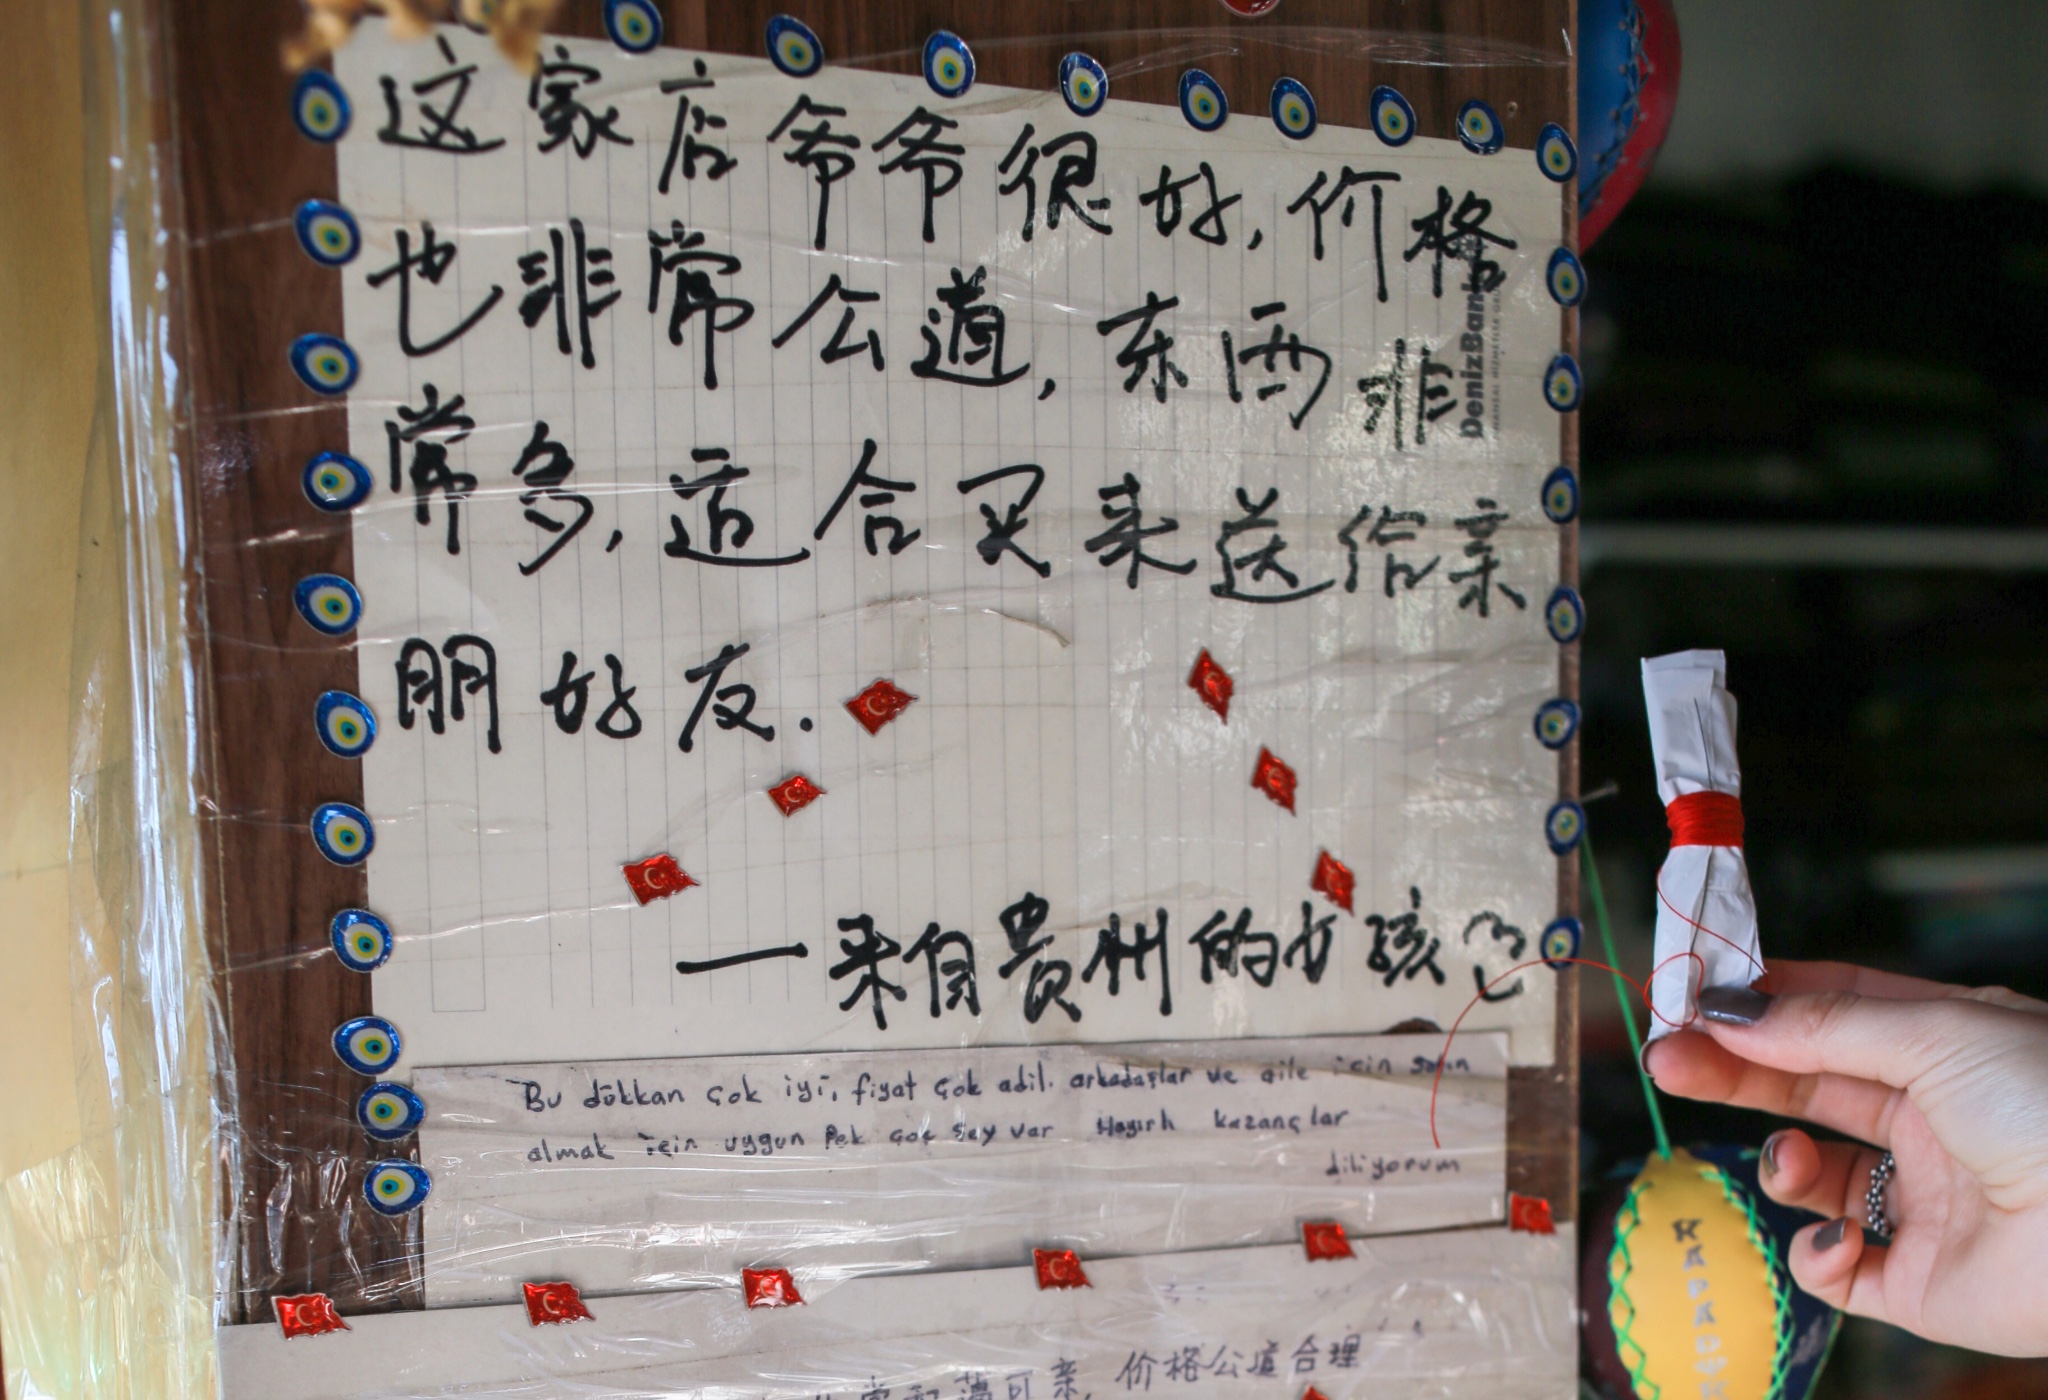 这家店爷爷很好,价格
也非常公道,东西非
常多,适合买来送给亲
朋好友.
一来自贵州的女孩
DenizBank
Bu dükkan çok iyi, fiyat çok adil. arkadaşlar ve aile için satın
almak için uygun Pek çoç şey var Hayırlı kazançlar
diliyorum
常和蔼可亲,价格公道合理
KAPADOK